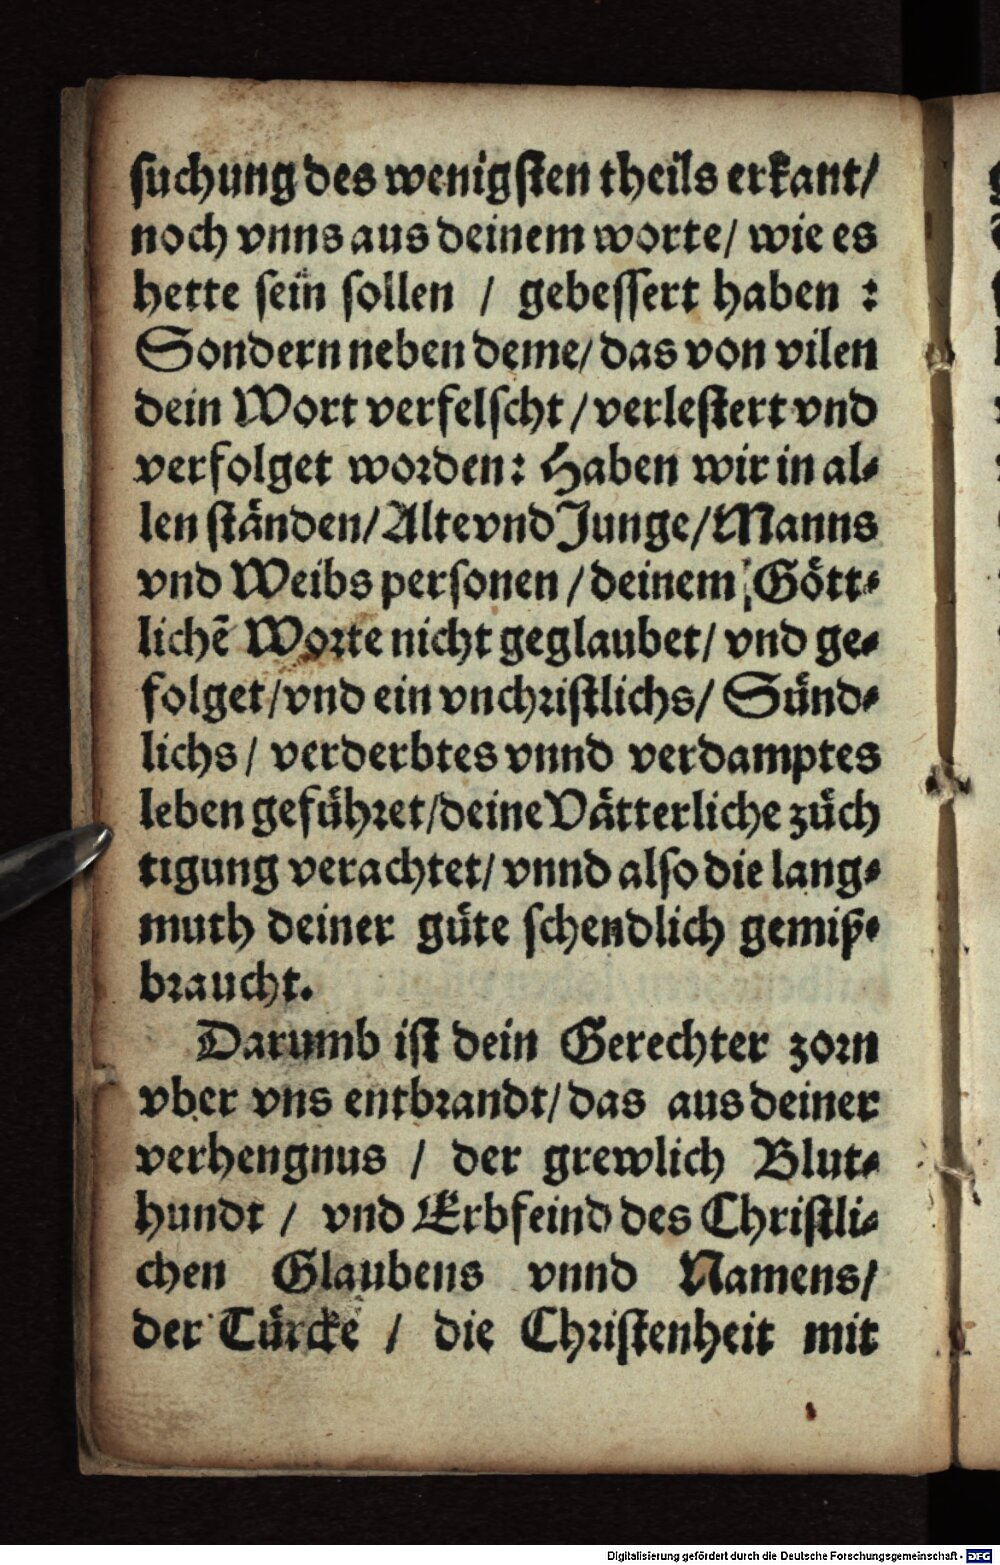 suchung des wenigsten theils erkant/
noch vnns aus deinem worte/ wie es
hette sein sollen / gebessert haben :
Sondern neben deme/ das von vilen
dein Wort verfelscht / verlestert vnd
verfolget worden: Haben wir in al-
len ständen/ Alte vnd Junge/ Manns
vnd Weibs personen / deinem Gött-
lichē Worte nicht geglaubet/ vnd ge-
folget/ vnd ein vnchristlichs/ Sünd-
lichs / verderbtes vnnd verdamptes
leben geführet/ deine Vätterliche züch
tigung verachtet/ vnnd also die lang-
muth deiner güte schendlich gemiß-
braucht.
Darumb ist dein Gerechter zorn
vber vns entbrandt/ das aus deiner
verhengnus / der grewlich Blut-
hundt / vnd Erbfeind des Christli-
chen Glaubens vnnd Namens/
der Türcke / die Christenheit mit
Digitalisierung gefördert durch die Deutsche Forschungsgemeinschaft - DFG